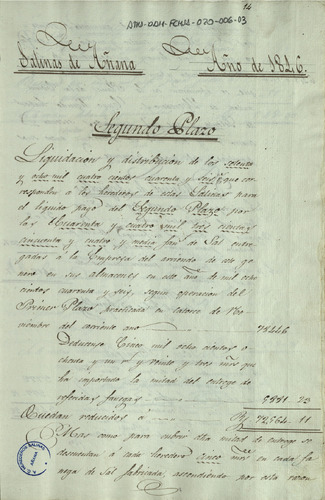 14
ATHA-DDH-FCHA-070-006-03
Salinas de Añana Año de 1846.
Segundo Plazo
Liquidacion y distribucion de los setenta
y ocho mil cuatro cientos cuarenta y seis r.s que cor-
responden a los herederos de estas Salinas para
el liquido pago del Segundo Plazo por
las Cuarenta y cuatro mil tres cientas
cincuenta y cuatro y media fan.s de Sal entre-
gadas a la Empresa del arriendo de este ge-
nero en sus almacenes en este año de mil ocho
cientos cuarenta y seis, segun operacion del
Primer Plazo practicada en catorce de No-
viembre del corriente año 78446
Deducense Cinco mil ocho cientos o-
chenta y un r.s y veinte y tres mrs que
ha importado la mitad del entrego de
referidas fanegas 5881 23
Quedan reducidos á R.s 72564 11
Mas como para cubrir dha mitad de entrego se
descuentan á cada heredero cinco mrs en cada fa-
nega de Sal fabricada, ascendiendo por esta razon